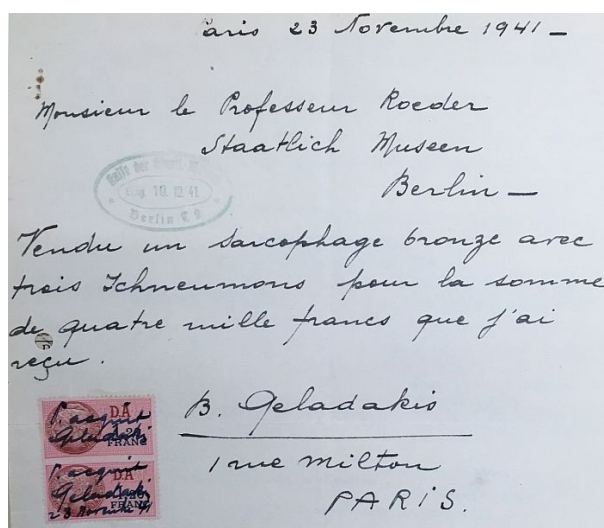 Paris 23 Novembre 1941 —
Monsieur le Professeur Roeder
Staatlich Museen
Berlin —
10.12.41
Berlin C 2
Vendu un sarcophage bronze avec
trois Ichneumons pour la somme
de quatre mille francs que j'ai
reçu.
B. Geladakis
1 rue Milton
PARIS.
D.A
FRANC
P. acquit
Geladakis
D.A
FRANC
P. acquit
Geladakis
23 Novembre 41